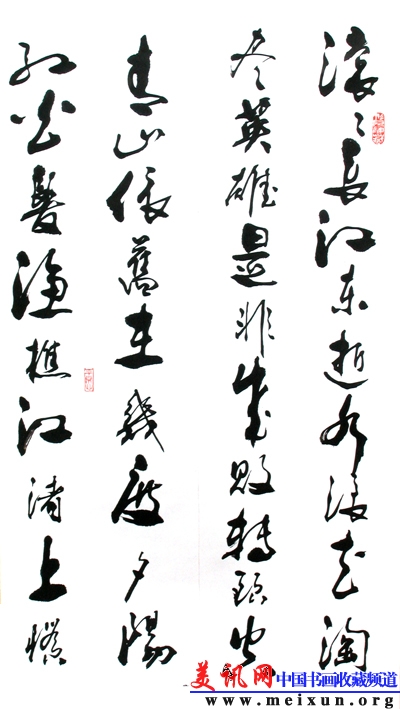 滚々長江東逝水浪花淘
尽英雄是非成敗轉頭空
青山依舊在幾度夕陽
红白髮渔樵江渚上慣
美讯网 中国书画收藏频道
www.meixun.org